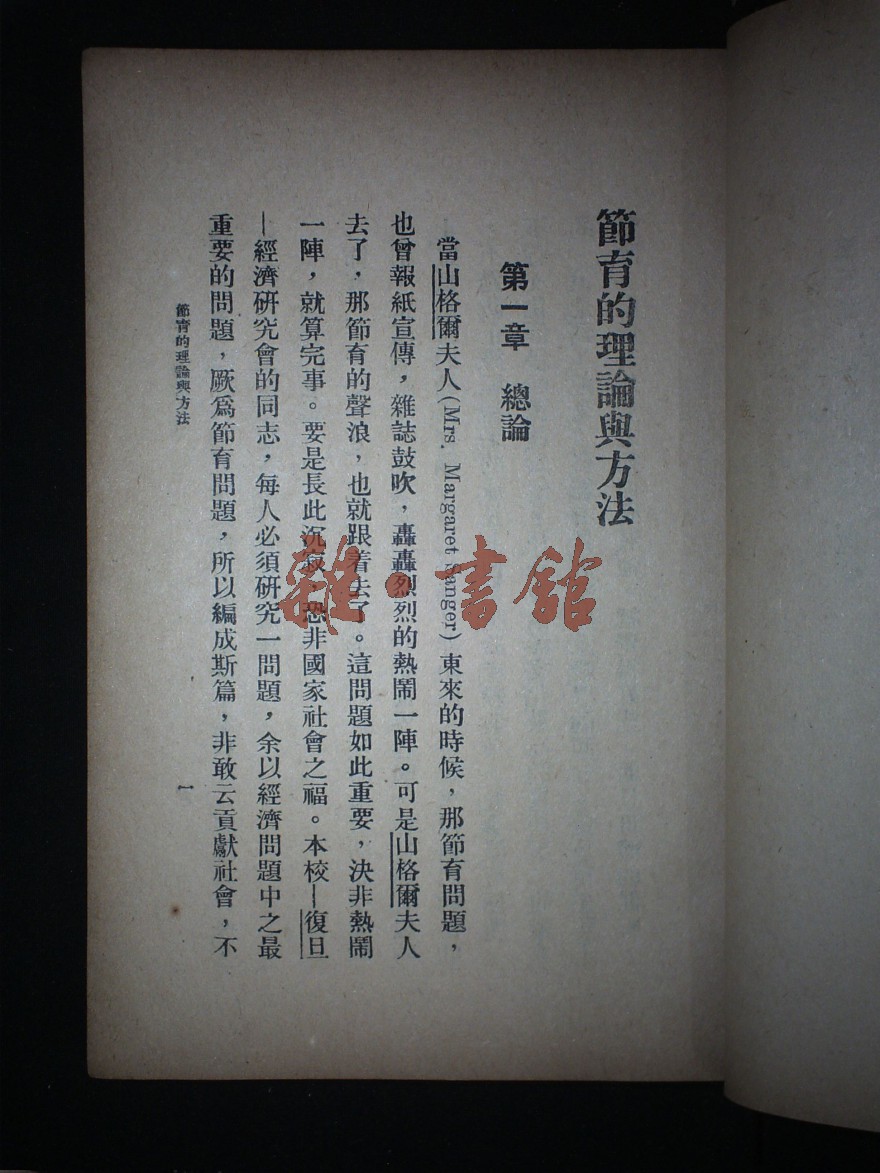 節育的理論與方法
第一章　總論
當山格爾夫人(Mrs. Margaret Sanger)東來的時候，那節育問題，
也曾報紙宣傳，雜誌鼓吹，轟轟烈烈的熱鬧一陣。可是山格爾夫人
去了，那節育的聲浪，也就跟着去了。這問題如此重要，決非熱鬧
一陣，就算完事。要是長此沉寂，恐非國家社會之福。本校—復旦
—經濟研究會的同志，每人必須研究一問題，余以經濟問題中之最
重要的問題，厥爲節育問題，所以編成斯篇，非敢云貢獻社會，不
節育的理論與方法
一
雜·書館